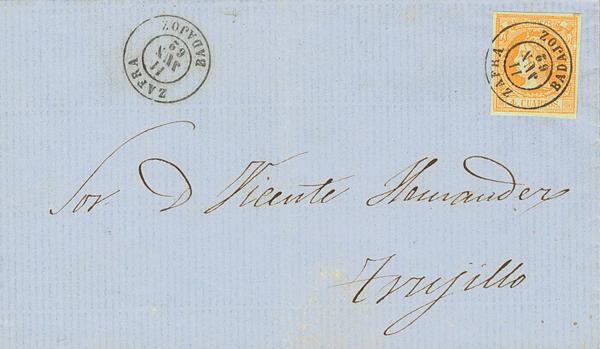 ZAFRA
11
JUN
62
BADAJOZ
ZAFRA
11
JUN
62
BADAJOZ
4 CUARTOS
Sor. D Vicente Hernandez
Trujillo